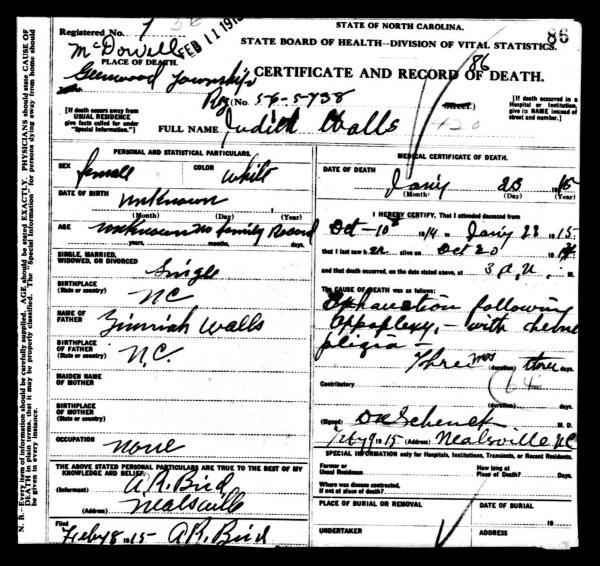 STATE OF NORTH CAROLINA.
STATE BOARD OF HEALTH—DIVISION OF VITAL STATISTICS.
86
Registered No. 7
FEB 11 191
McDowell
PLACE OF DEATH.
Township
CERTIFICATE AND RECORD OF DEATH.
86
[If death occurs away from
USUAL RESIDENCE
give facts called for under
"Special Information."]
Reg (No. 56-5738
Street.)
[If death occurred in a
Hospital or Institution,
give its NAME instead of
street and number.]
420
FULL NAME Judith Walls
PERSONAL AND STATISTICAL PARTICULARS.
SEX female COLOR White
DATE OF BIRTH unknown
(Month) (Day) (Year)
AGE unknown no family Record
years, months, days.
SINGLE, MARRIED,
WIDOWED, OR DIVORCED Single
BIRTHPLACE
(State or country) NC
NAME OF
FATHER Walls
BIRTHPLACE
OF FATHER
(State or country) N,C,
MAIDEN NAME
OF MOTHER
BIRTHPLACE
OF MOTHER
(State or country)
OCCUPATION none
THE ABOVE STATED PERSONAL PARTICULARS ARE TRUE TO THE BEST OF MY
KNOWLEDGE AND BELIEF.
(Informant) A.R. Bird
(Address) Nealsville
Filed Feby 8 1915- A.R. Bird
MEDICAL CERTIFICATE OF DEATH.
DATE OF DEATH
Jany 23 1915
(Month) (Day)
I HEREBY CERTIFY, That I attended deceased from
Oct-10 1914 to Jany 23 1915-
that I last saw her alive on Oct 20 19
and that death occurred, on the date stated above, at 3 a, M.
The CAUSE OF DEATH was as follows:
Exhaustion following
Appoplexy,- with
plegia-
Three mos (duration) three days.
64
Contributory
(duration) days.
(Signed) Schenck M. D.
Feby 9 1915 (Address) Nealsville NC
SPECIAL INFORMATION only for Hospitals, Institutions, Transients, or Recent Residents.
Former or
Usual Residence
How long at
Place of Death? Days
Where was disease contracted,
if not at place of death?
PLACE OF BURIAL OR REMOVAL
DATE OF BURIAL
19
UNDERTAKER
ADDRESS
N. B.—Every item of information should be carefully supplied. AGE should be stated EXACTLY. PHYSICIANS should state CAUSE OF
DEATH in plain terms, that it may be properly classified. The "Special Information" for persons dying away from home should
be given in every instance.